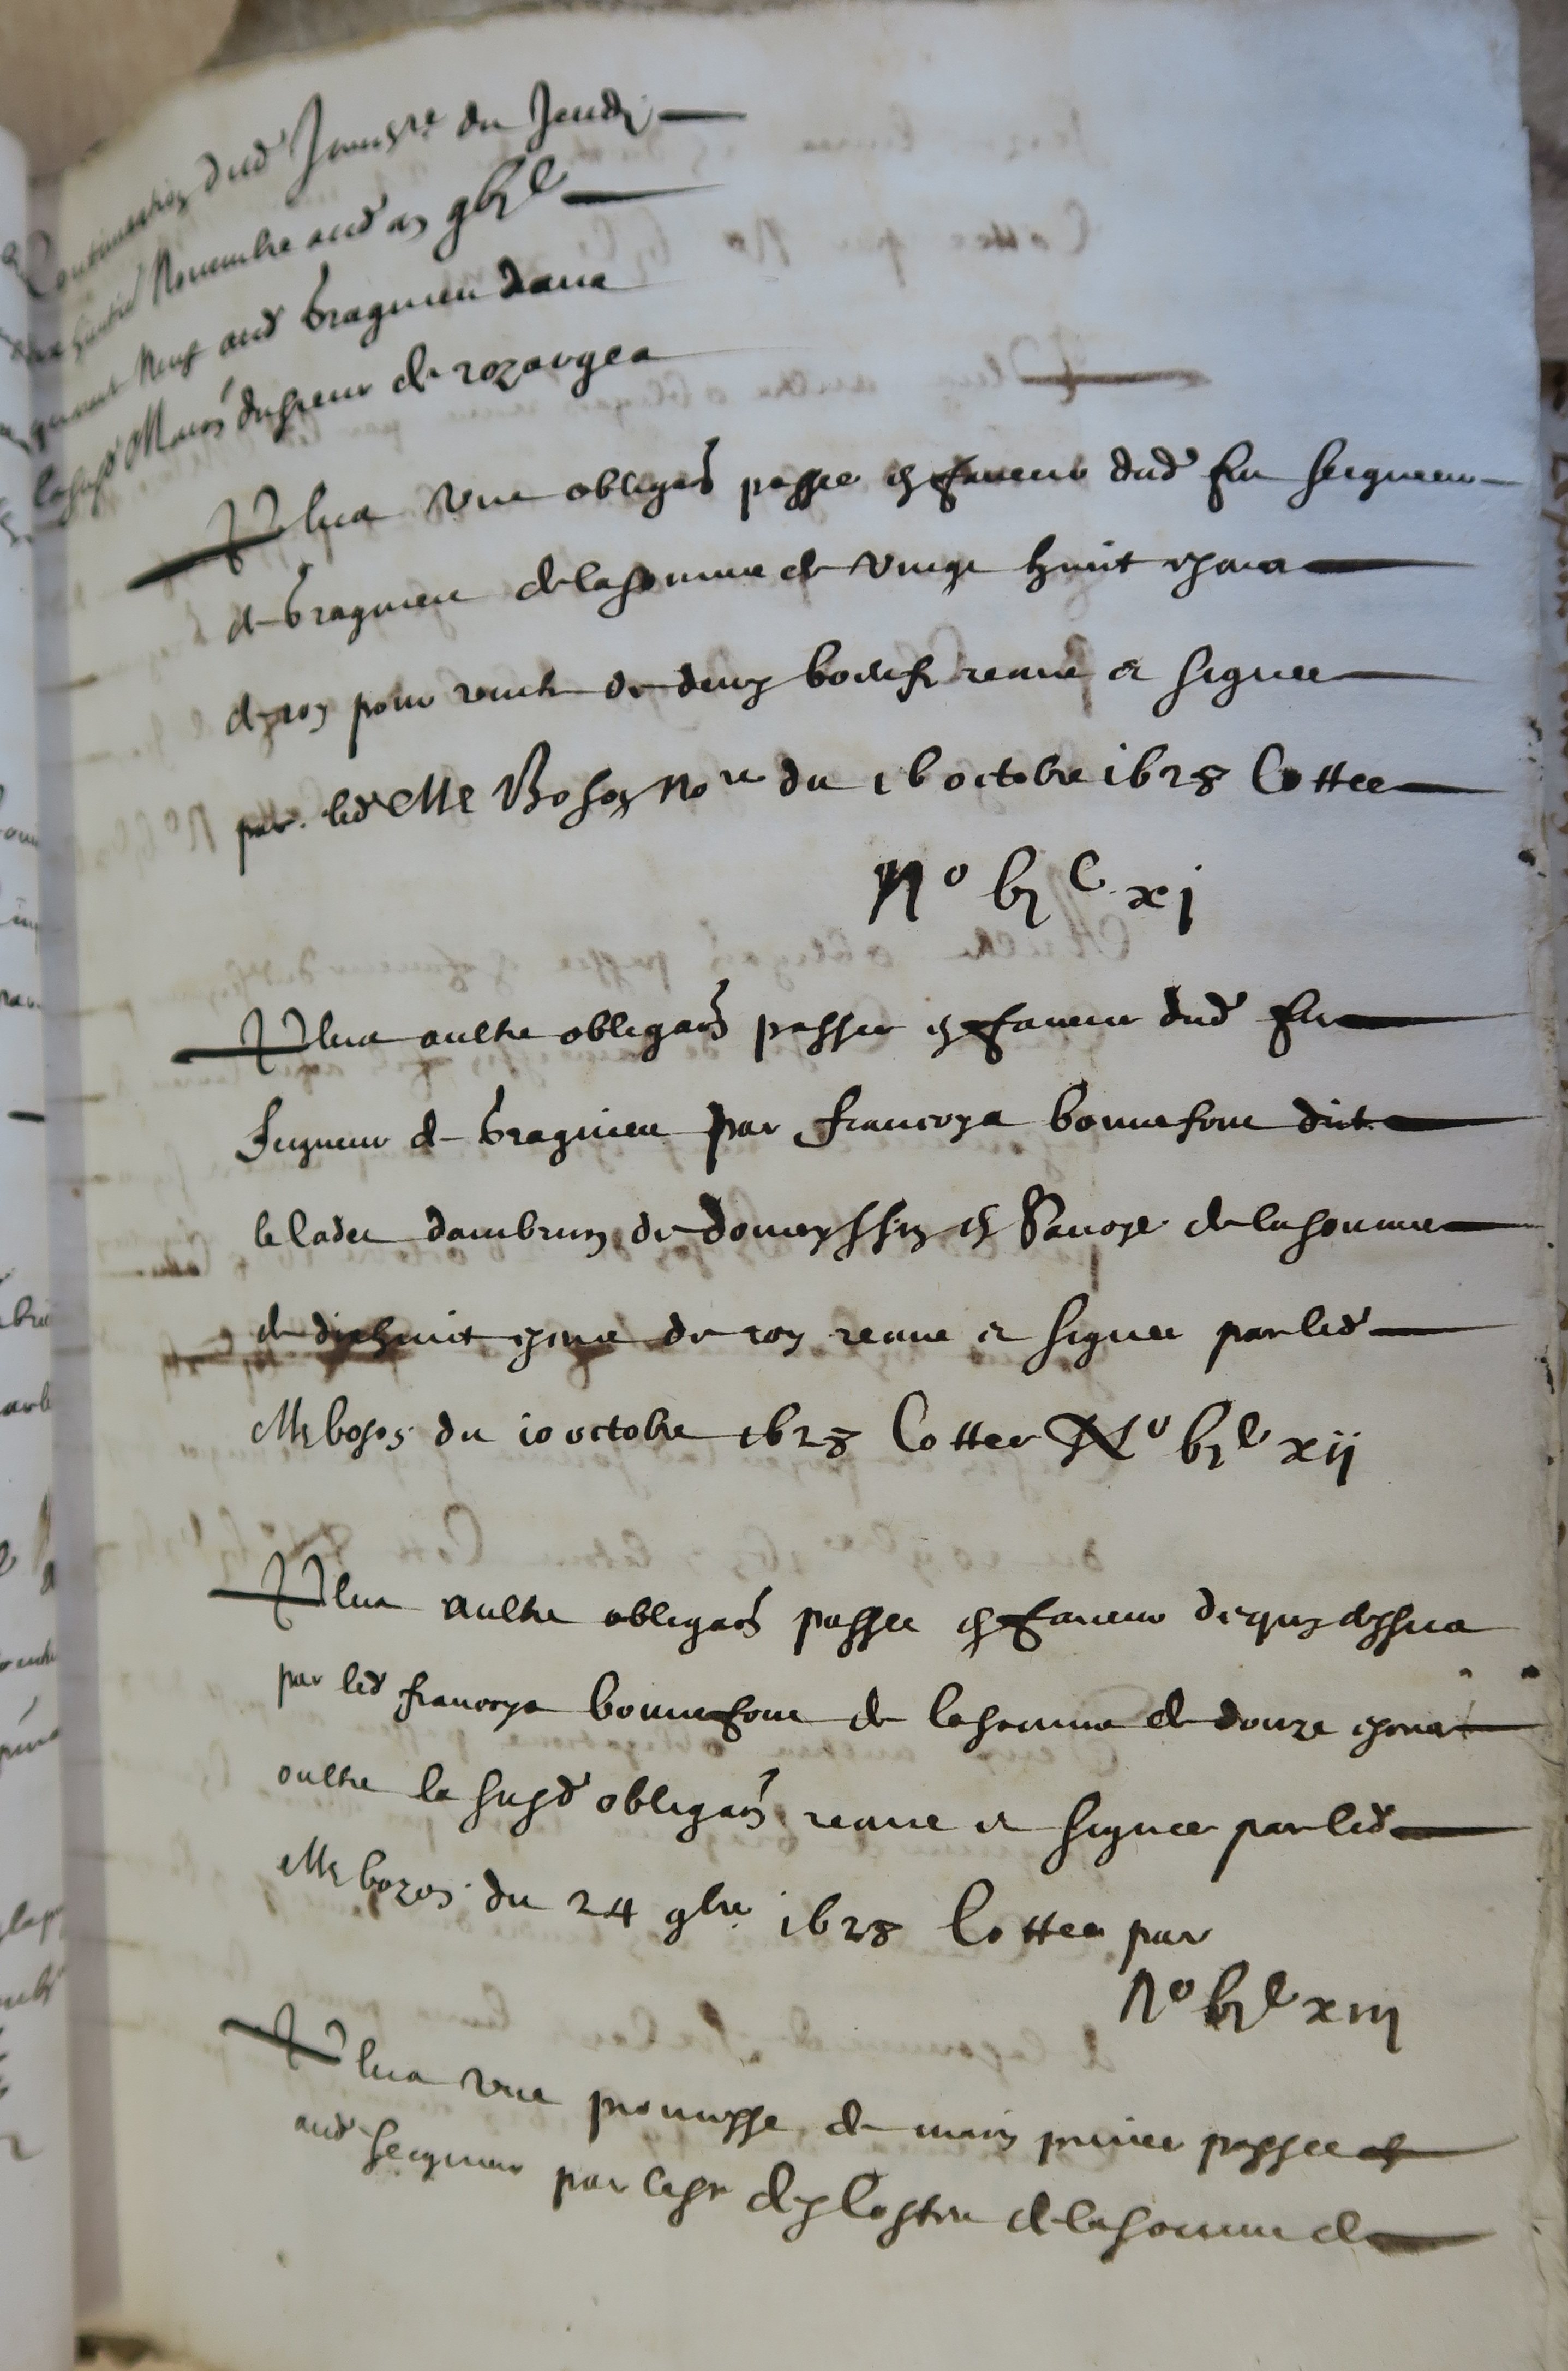 Continuation dud Inventre du Jeudi
dix huitie Novembre aud an gbic
quarant neuf aud bragnieu dans
lasusd Maion du sieur de rozarges
Plus une obligaon passee en faveur dud feu seigneur
de bragnieu de la somme de vingt huict escus
de roy pour vente de deux boeufs receue et signee
par led Me Boson nore du 16 octobre 1628 Cottee
No vic xj
Plus aultre obligaon passee en faveur dud feu
seigneur de bragnieu par francoys bonnefont dict
le cadet dambrun de domeyssin en Savoye de la somme
de dixhuict escus de roy receue et signee par led
Me boson du 10 octobre 1628 Cottee No vic xij
Plus aultre obligaon passee en faveur de quy dessus
par led francoys bonnefont de la somme de douze escus
oultre la susd obligaon receue et signee par led
Me bozon du 24 9bre 1628 Cottee par
No vic xiij
Plus une promesse de main privee passee
aud seigneur par le sr de la somme de